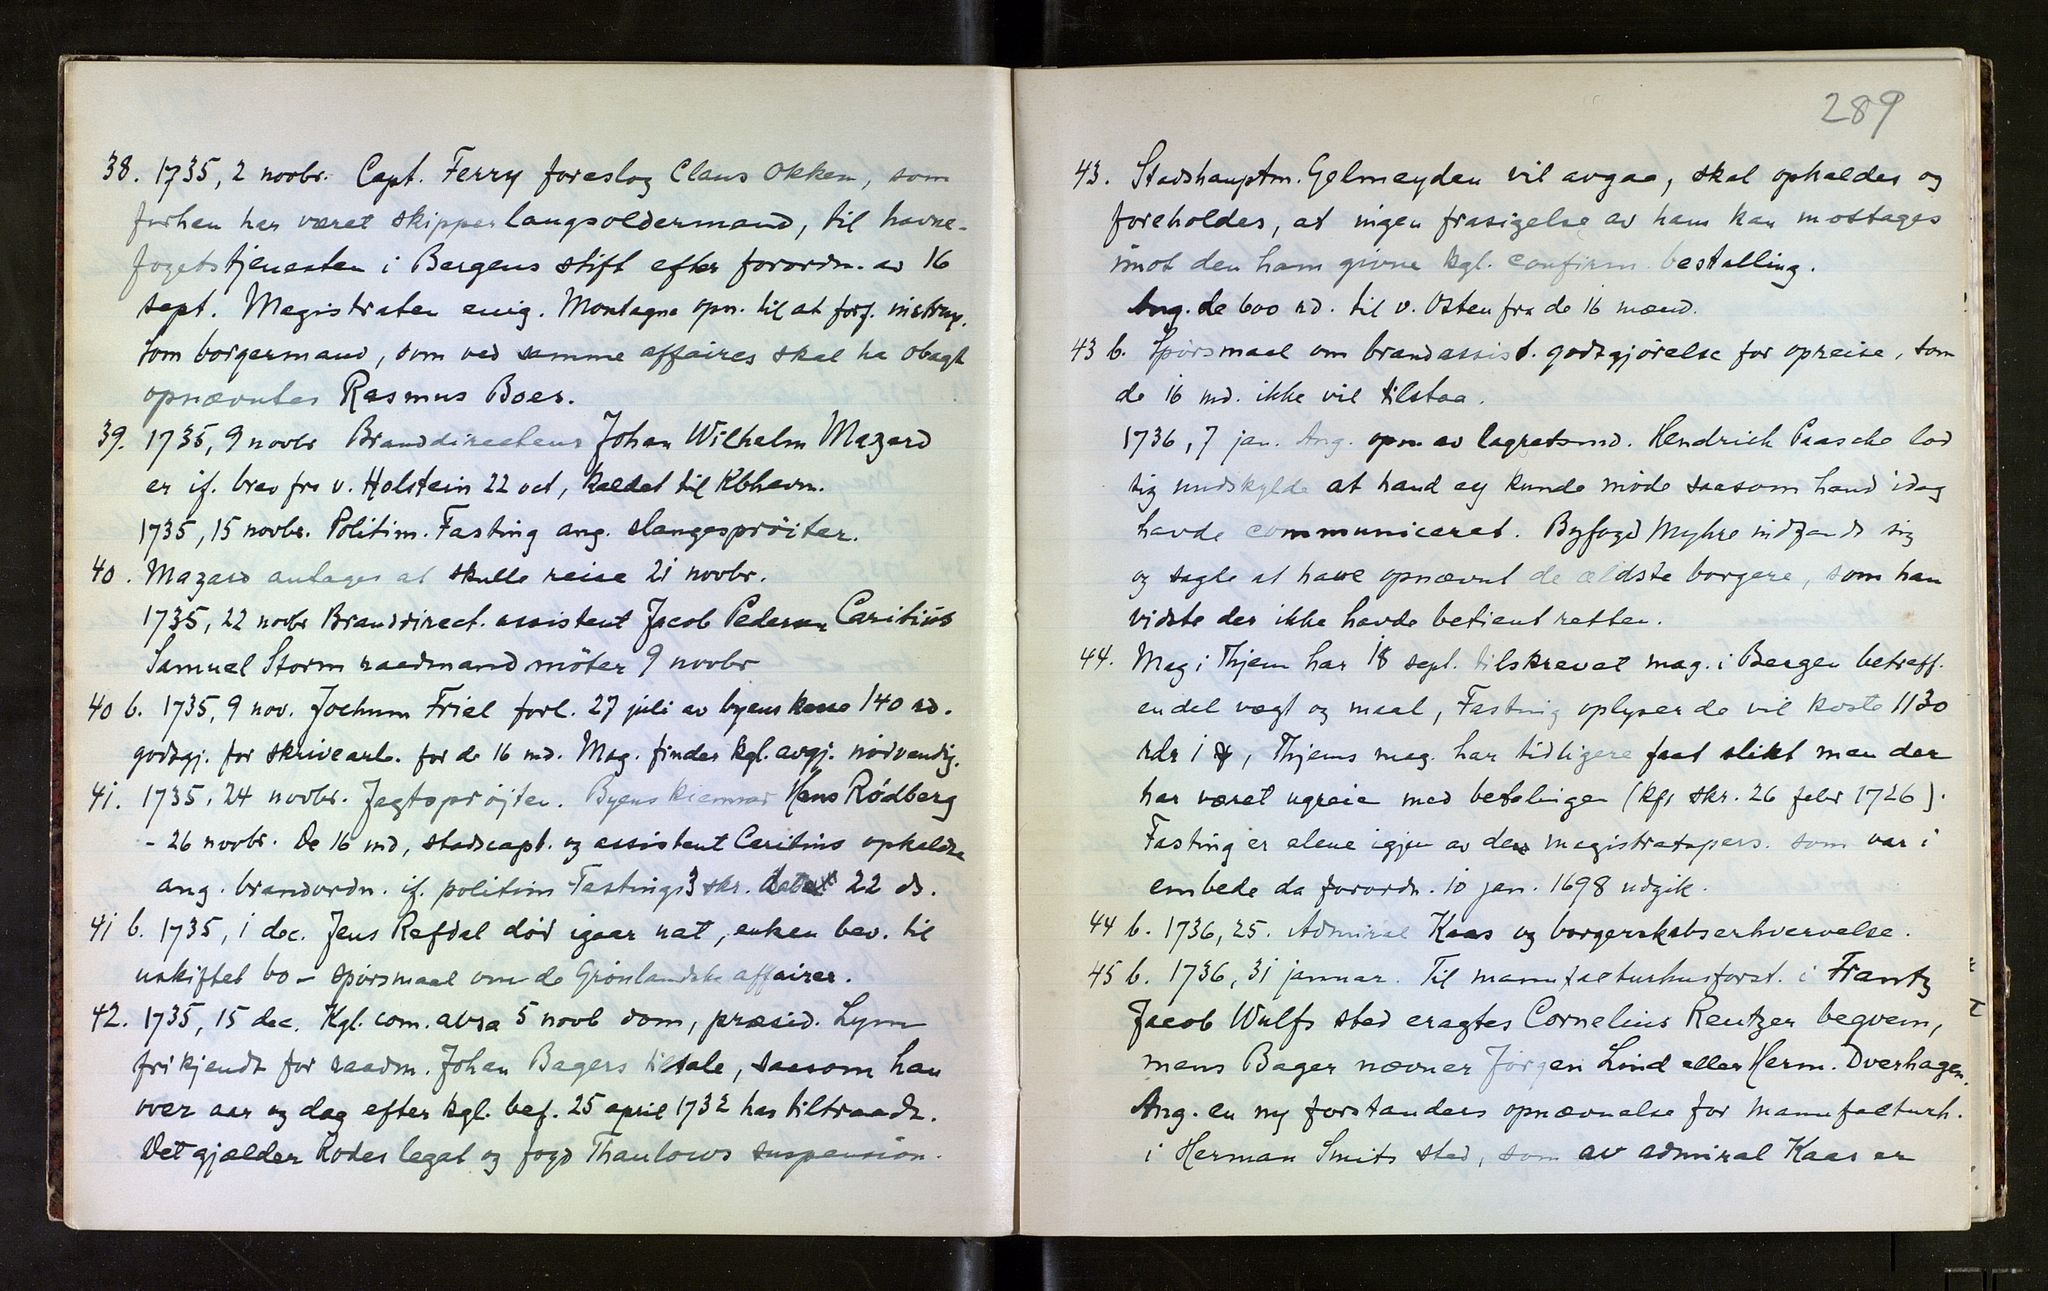 38. 1735, 2 novbr. Capt. Ferry foreslog Claus Okken, som
forhen har været skipperlaugsoldermand, til havne-
fogetstjenesten i Bergens stift efter forordn. av 16
sept. Magistraten enig. Montagne opn. til at forf. instrux.
Som borgermand, som ved samme affaires skal ha obagt
opnævntes Rasmus Boer.
39. 1735, 9 novbr Branddirecteur Johan Wilhelm Mazard
er if. brev fra v. Holstein 22 oct, kaldet til Kbhavn.
1735, 15 novbr. Politim. Fasting ang. slangesprøiter.
40. Mazard antages at skulle reise 21 novbr.
1735, 22 novbr Branddirect. assistent Jacob Pedersen Caritius
Samuel Storm raadmand möter 9 novbr
40 b. 1735, 9 nov. Jochum Friel forl. 27 juli av byens kasse 140 rd.
godtgj. for skrivearb. for de 16 md. Mag. finder kgl. avgj. nödvendig.
41. 1735, 24 novbr. Jagtsprøjten. Byens kiemner Hans Rødberg
- 26 novbr. De 16 md, stadscapt. og assistent Caritius opkaldte
ang. brandordn. if. politim Fastings 3 skr. datert 22 ds.
41 b. 1735, 1 dec. Jens Refdal död igaar nat, enken bev. til
uskiftet bo - spörsmaal om de Grönlandske affairer.
42. 1735, 15 dec. Kgl. com. avsa 5 novb dom, præsid. Lym
frikjendt for raadm. Johan Bagers tiltale, saasom han
over aar og dag efter kgl. bef. 25 april 1732 har tiltraadt.
Det gjælder Rodes legat og fogd Thaulows suspension.
289
43. Stadshauptm. Gelmeyden vil avgaa, skal opkaldes og
foreholdes, at ingen frasigelse av ham kan mottages
imot den ham givne kgl. confirm. bestalling.
Ang. de 600 rd. til v. Osten fra de 16 mænd.
43 b. Spörsmaal om brandassist. godtgjörelse for opreise, som
de 16 md. ikke vil tilstaa.
1736, 7 jan. Ang. opn. av lagretsmd. Hendrich Paasche lod
sig undskylde at hand ey kunde möde saasom hand idag
havde communiceret. Byfogd Myhre indfandt sig
og sagte at have opnævnt de ældste borgere, som han
vidste der ikke havde betient retten.
44. Mag i Thjem har 18 sept. tilskrevet mag. i Bergen betreff.
endel vægt og maal, Fasting oplyser de vil koste 1130
rdr i , Thjems mag. har tidligere faat slikt men der
har været ugreie med betalingen (kfr skr. 26 febr 1726).
Fasting er alene igjen av den magistratspers. som var i
embede da forordn. 10 jan. 1698 udgik.
44 b. 1736, 25. Admiral Kaas og borgerskabserhvervelse.
45 b. 1736, 31 januar. Til manufacturhusforst. i Frantz
Jacob Wulfs sted eragtes Cornelius Rentzer beqvem,
mens Bager nævner Jörgen Lind eller Herm. Overhagen.
Ang. en ny forstanders opnævnelse for manufacturh.
i Herman Smits sted, som av admiral Kaas er